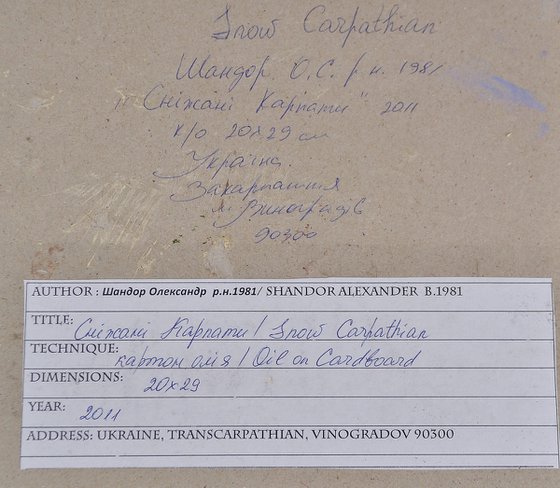 Snow Carpathian
Шандор О.С. р.н. 1981
"Сніжані Карпати" 2011
к/о 20х29 см
Україна
Закарпаття
м. Виноградів
90300
AUTHOR : Шандор Олександр р.н.1981/ SHANDOR ALEXANDER B.1981
TITLE: Сніжані Карпати / Snow Carpathian
TECHNIQUE: картон олія / Oil on Cardboard
DIMENSIONS: 20x29
YEAR: 2011
ADDRESS: UKRAINE, TRANSCARPATHIAN, VINOGRADOV 90300